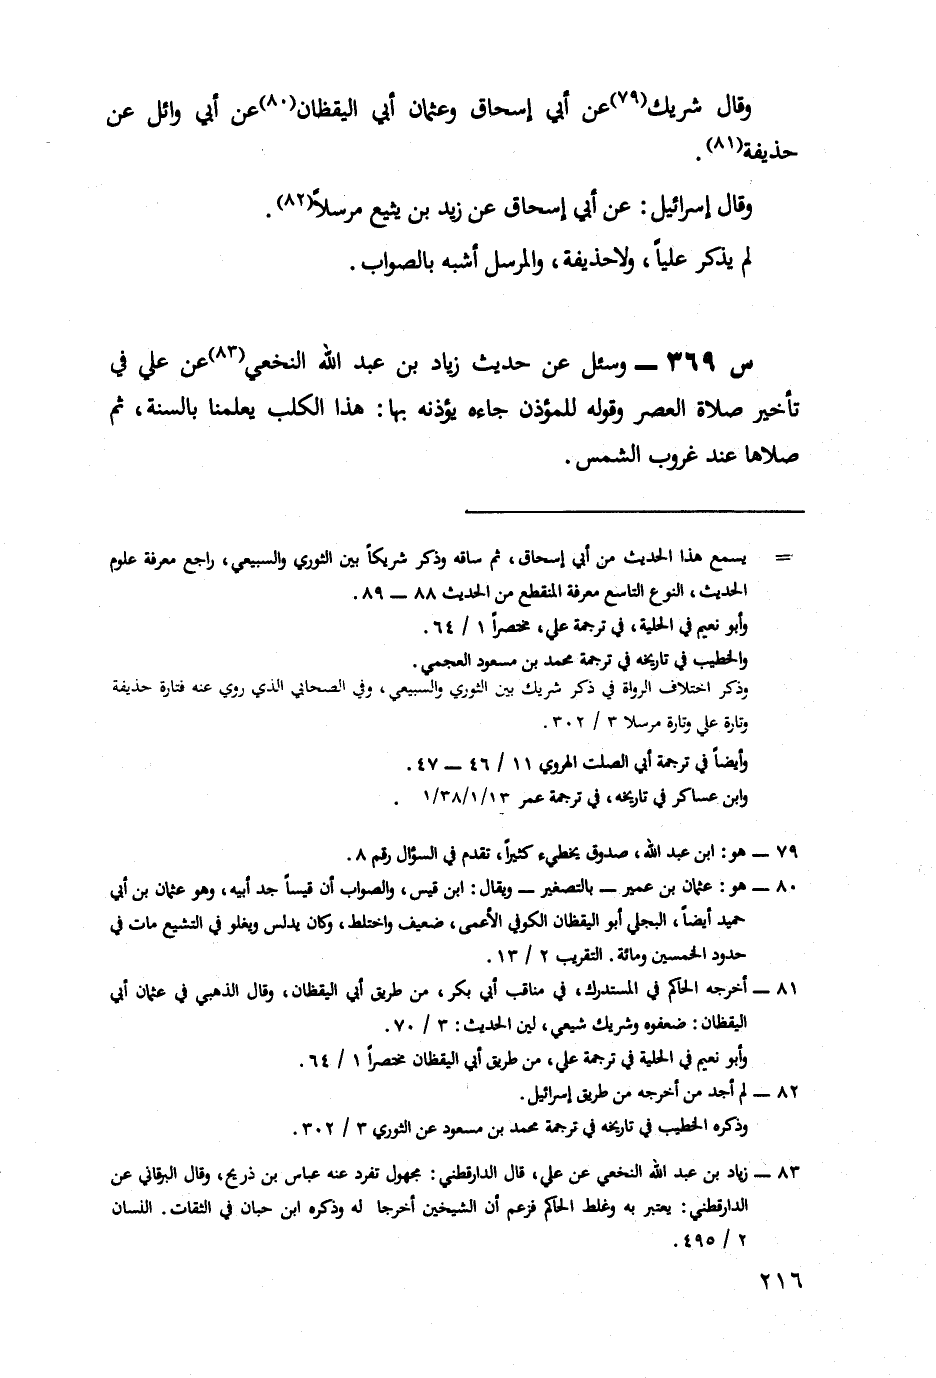 وقال شريك(٧٩)عن أبي إسحاق وعثمان أبي اليقظان(٨٠)عن أبي وائل عن
حذيفة(٨١).
وقال إسرائيل: عن أبي إسحاق عن زيد بن يثيع مرسلاً(٨٢).
لم يذكر علياً، ولاحذيفة، والمرسل أشبه بالصواب.
س ٣٦٩ ــ وسئل عن حديث زياد بن عبد الله النخعي(٨٣)عن علي في
تأخير صلاة العصر وقوله للمؤذن جاءه يؤذنه بها: هذا الكلب يعلمنا بالسنة، ثم
صلاها عند غروب الشمس.
= يسمع هذا الحديث من أبي إسحاق، ثم ساقه وذكر شريكاً بين الثوري والسبيعي، راجع معرفة علوم
الحديث، النوع التاسع معرفة المنقطع من الحديث ٨٨ ــ ٨٩.
وأبو نعيم في الحلية، في ترجمة علي، مختصراً ١ / ٦٤.
والخطيب في تاريخه في ترجمة محمد بن مسعود العجمي.
وذكر اختلاف الرواة في ذكر شريك بين الثوري والسبيعي، وفي الصحابي الذي روي عنه فتارة حذيفة
وتارة علي وتارة مرسلا ٣ / ٣٠٢.
وأيضاً في ترجمة أبي الصلت الهروي ١١ / ٤٦ ــ ٤٧.
وابن عساكر في تاريخه، في ترجمة عمر ١٣/١/٣٨/١ .
٧٩ ــ هو: ابن عبد الله، صدوق يخطيء كثيراً، تقدم في السؤال رقم ٨.
٨٠ ــ هو: عثمان بن عمير ــ بالتصغير ــ ويقال: ابن قيس، والصواب أن قيساً جد أبيه، وهو عثمان بن أبي
حميد أيضاً، البجلي أبو اليقظان الكوفي الأعمى، ضعيف واختلط، وكان يدلس ويغلو في التشيع مات في
حدود الخمسين ومائة. التقريب ٢ / ١٣.
٨١ ــ أخرجه الحاكم في المستدرك، في مناقب أبي بكر، من طريق أبي اليقظان، وقال الذهبي في عثمان أبي
اليقظان: ضعفوه وشريك شيعي، لين الحديث: ٣ / ٧٠.
وأبو نعيم في الحلية في ترجمة علي، من طريق أبي اليقظان مختصراً ١ / ٦٤.
٨٢ ــ لم أجد من أخرجه من طريق إسرائيل.
وذكره الخطيب في تاريخه في ترجمة محمد بن مسعود عن الثوري ٣ / ٣٠٢.
٨٣ ــ زياد بن عبد الله النخعي عن علي، قال الدارقطني: مجهول تفرد عنه عباس بن ذريح، وقال البرقاني عن
الدارقطني: يعتبر به وغلط الحاكم فزعم أن الشيخين أخرجا له وذكره ابن حبان في الثقات. اللسان
٢ / ٤٩٥.
٢١٦